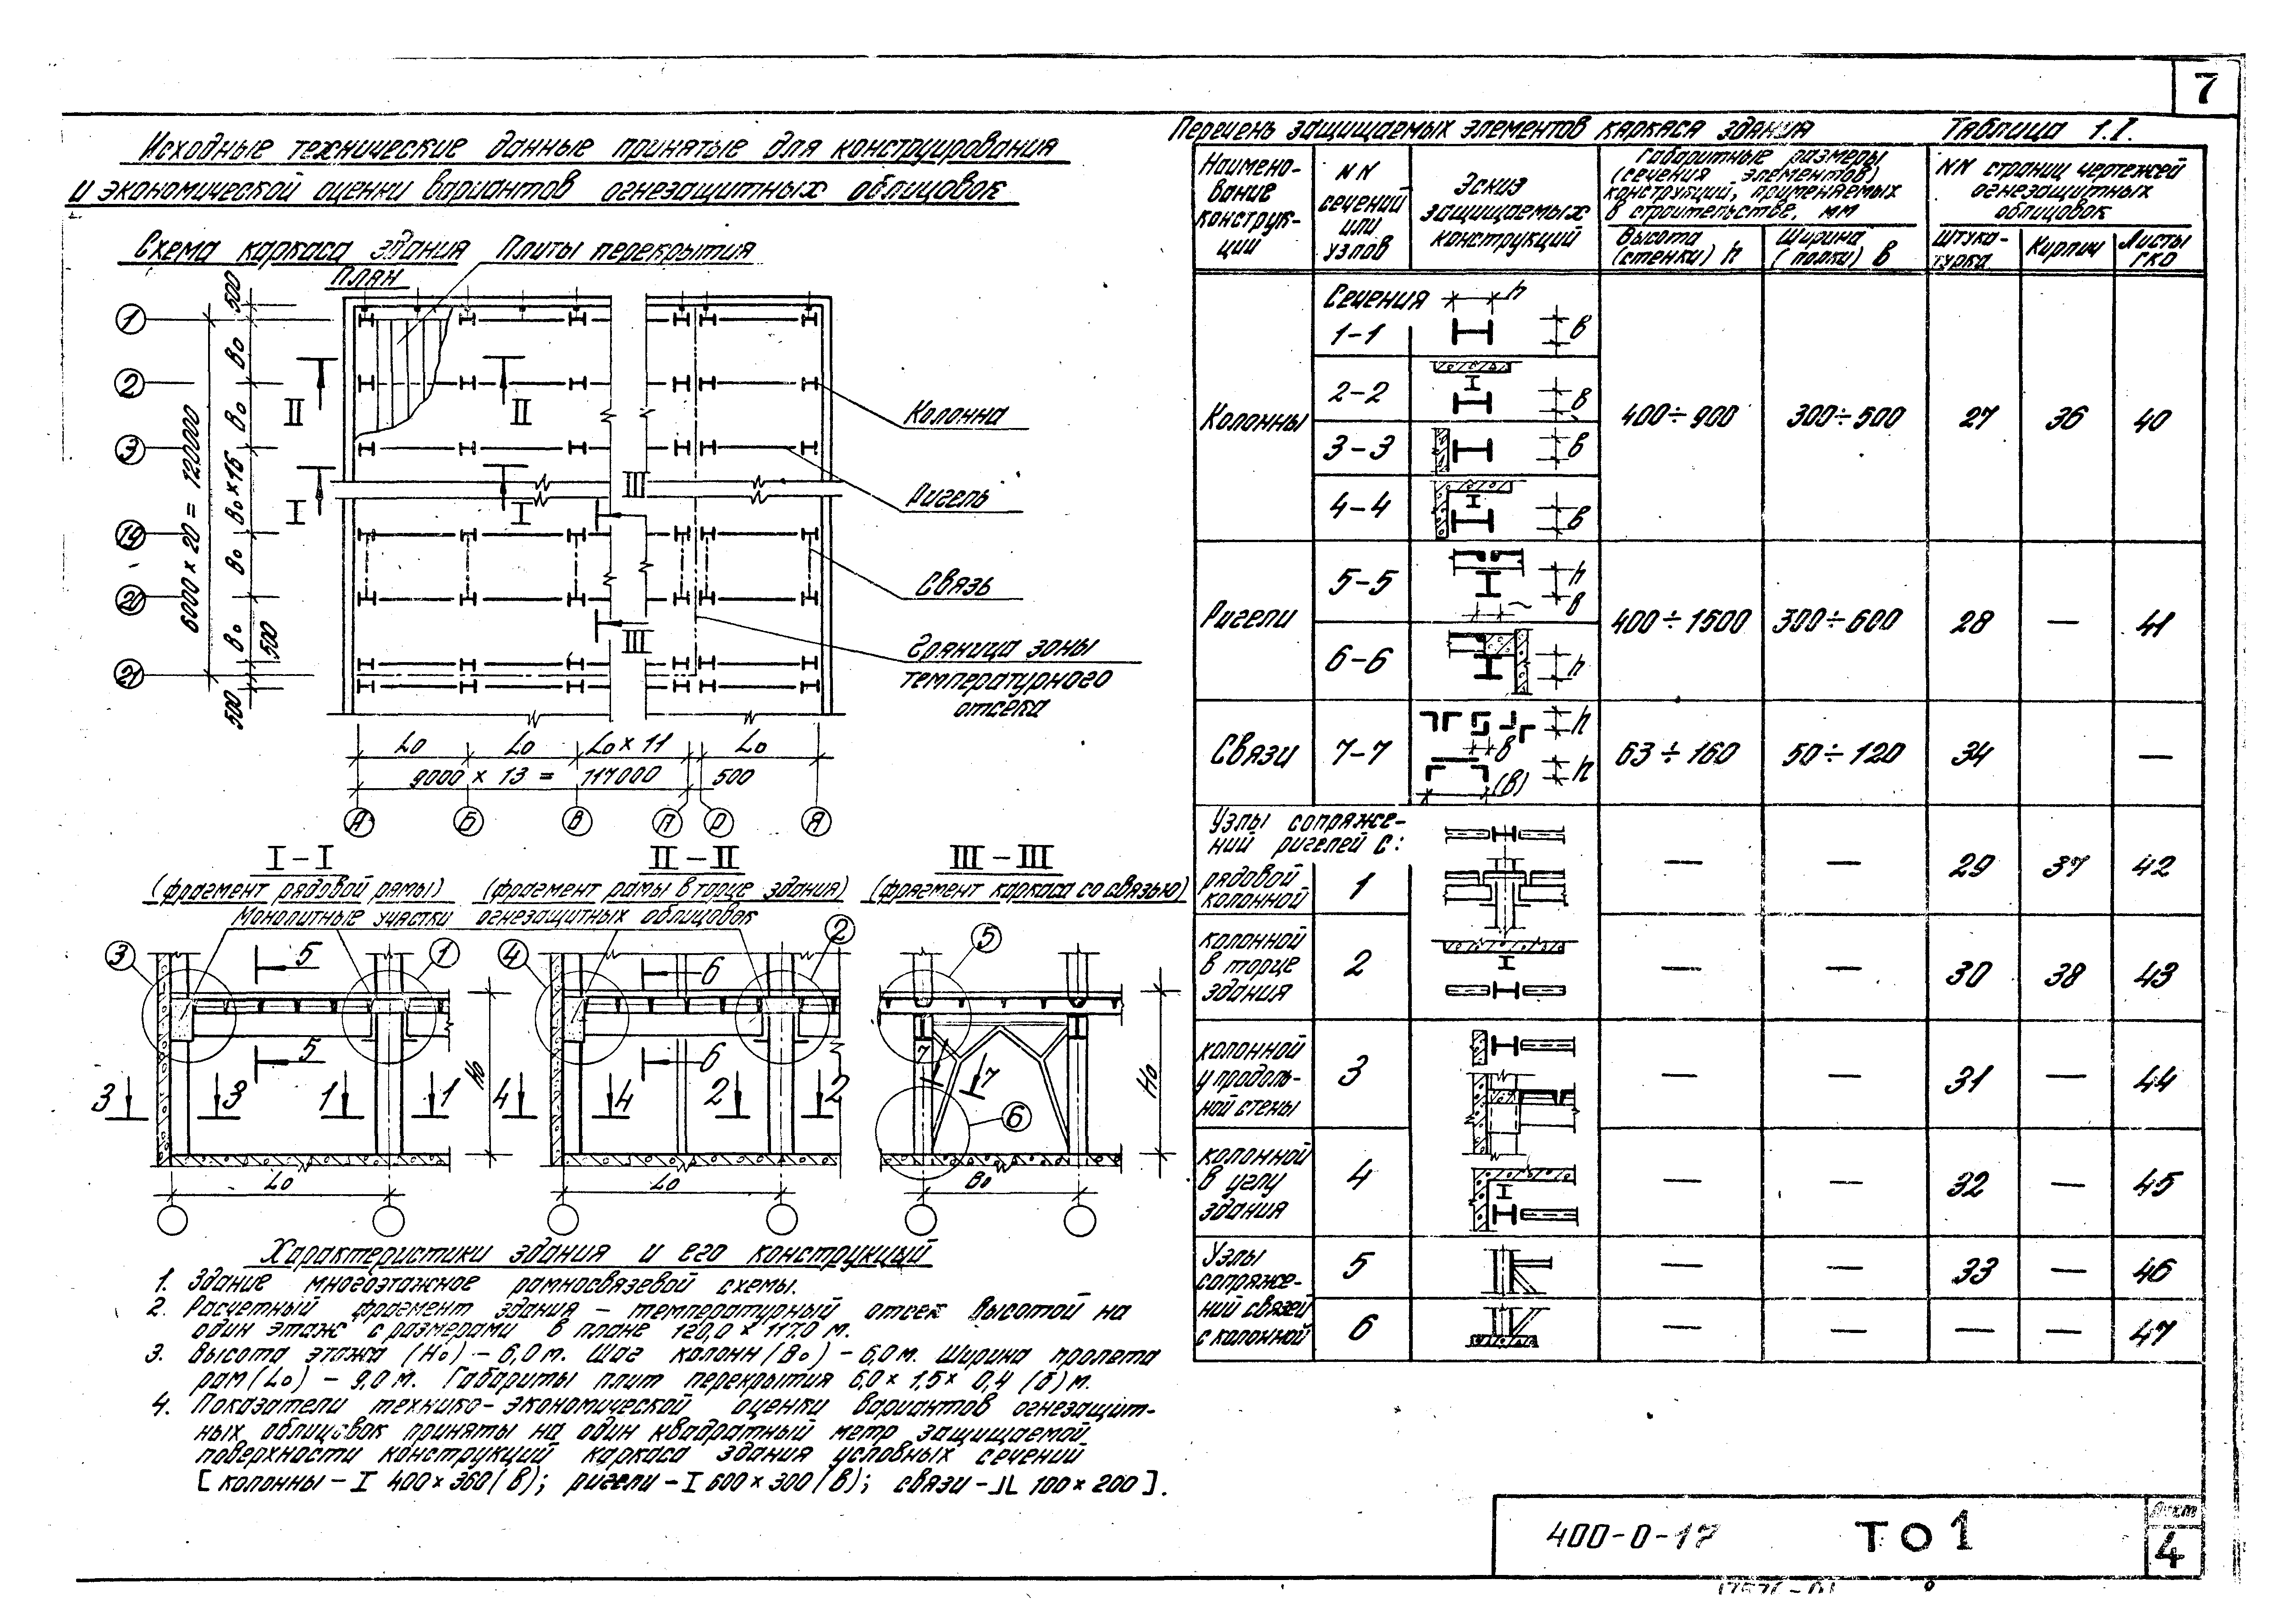 7
Исходные технические данные принятые для конструирования
и экономической оценки вариантов огнезащитных облицовок
Схема каркаса здания
Плиты перекрытия
План
1
2
3
19
20
21
500
В₀
В₀
В₀ × 16
В₀
В₀
500
500
6000 × 20 = 120000
II
II
I
I
III
III
Колонна
Ригель
Связь
Граница зоны
температурного
отсека
L₀
L₀
L₀ × 11
L₀
9000 × 13 = 117000
500
А
Б
В
П
Р
Я
I – I
(фрагмент рядовой рамы)
II – II
(фрагмент рамы в торце здания)
III – III
(фрагмент каркаса со связью)
Монолитные участки огнезащитных облицовок
3
5
1
4
6
2
5
5
6
7
7
6
3
3
1
1
4
4
2
2
H₀
H₀
L₀
L₀
В₀
Характеристики здания и его конструкций
1. Здание многоэтажное рамносвязевой схемы.
2. Расчетный фрагмент здания – температурный отсек высотой на
один этаж с размерами в плане 120,0 × 117,0 м.
3. Высота этажа (H₀) – 6,0 м. Шаг колонн (В₀) – 6,0 м. Ширина пролета
рам (L₀) – 9,0 м. Габариты плит перекрытия 6,0 × 1,5 × 0,4 (б) м.
4. Показатели технико-экономической оценки вариантов огнезащит-
ных облицовок приняты на один квадратный метр защищаемой
поверхности конструкций каркаса здания условных сечений
[колонны – I 400 × 360 (в); ригели – I 600 × 300 (в); связи – ⅃L 100 × 200].
Перечень защищаемых элементов каркаса здания
Таблица 1.I.
Наимено-
вание
конструк-
ции
NN
сечений
или
узлов
Эскиз
защищаемых
конструкций
Габаритные размеры
(сечения элементов)
конструкций, применяемых
в строительстве, мм
Высота
(стенки) h
Ширина
(полки) в
NN страниц чертежей
огнезащитных
облицовок
Штука-
турка
Кирпич
Листы
ГКО
Колонны
Сечения
h
1-1
в
2-2
в
3-3
в
4-4
в
400÷900
300÷500
27
36
40
Ригели
5-5
h
в
6-6
h
400÷1500
300÷600
28
—
41
Связи
7-7
h
в
h
(в)
63÷160
50÷120
34
—
Узлы сопряже-
ний ригелей с:
рядовой
колонной
1
—
—
29
37
42
колонной
в торце
здания
2
—
—
30
38
43
колонной
у продоль-
ной стены
3
—
—
31
—
44
колонной
в углу
здания
4
—
—
32
—
45
Узлы
сопряже-
ний связей
с колонной
5
—
—
33
—
46
6
—
—
—
—
47
400-0-17
ТО1
Лист
4